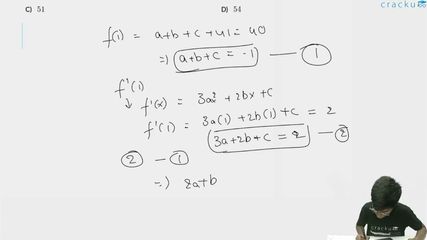 cracku
C) 51 D) 54
f(1) = a+b+c+41 = 40
=) a+b+c = -1 — 1
f'(1)
↓ f'(x) = 3ax² + 2bx + c
f'(1) = 3a(1) + 2b(1) + c = 2
3a+2b+c = 2 — 2
2 – 1
=) 2a+b
cracku